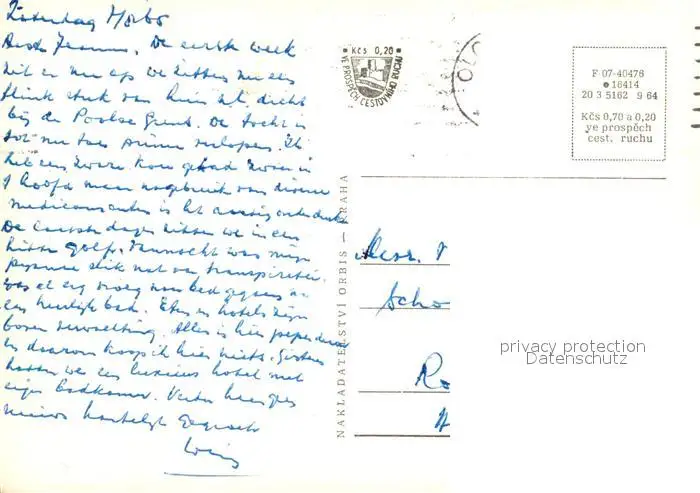 Zaterdag
Beste Jeanne. De eerste week
zit er nu op we zitten nu een
flink stuk van hier af, dicht
bij de Poolse Grens. De tocht is
tot nu toe prima verlopen. Ik
heb een zware kou gehad zwaar in
't hoofd maar
medicamenten is het
De laatste dagen zitten we in een
hitte golf. Vannacht was mijn
pyama nat van transpiratie.
was al erg vroeg naar bed gegaan na
een heerlijk bad. Eten en hotels zijn
boven verwachting. Alles is hier peperduur
en daarom koop ik hier niets. Gisteren
hadden we een luxueus hotel met
eigen badkamer. Verder geen
nieuws hartelijk gegroet
Kčs 0,20
VE PROSPĚCH CESTOVNÍHO RUCHU
OLO
F 07-40476
16414
20 3 5162 9 64
Kčs 0,70 a 0,20
ve prospěch
cest. ruchu
NAKLADATELSTVÍ ORBIS — PRAHA
Scho
Ro
privacy protection
Datenschutz